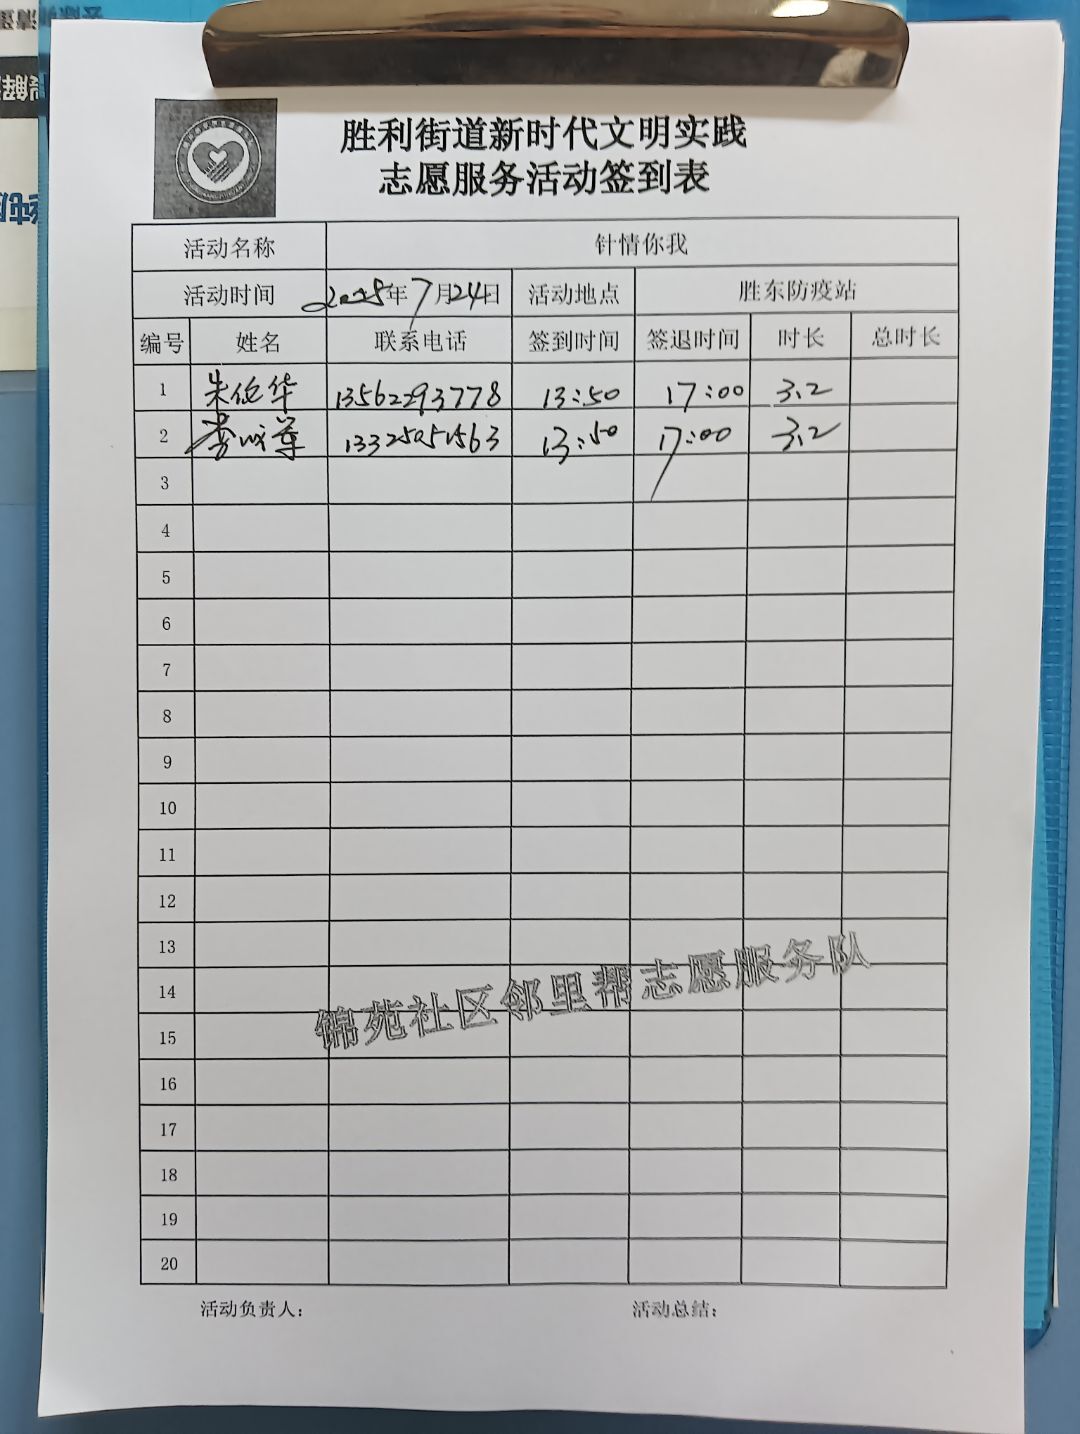 胜利街道新时代文明实践
志愿服务活动签到表
活动名称 针情你我
活动时间 2025年7月24日 活动地点 胜东防疫站
编号 姓名 联系电话 签到时间 签退时间 时长 总时长
1 朱伦华 13562293778 13:50 17:00 3.2
2 13325051563 13:50 17:00 3.2
3
4
5
6
7
8
9
10
11
12
13
14
15
16
17
18
19
20
锦苑社区邻里帮志愿服务队
活动负责人: 活动总结: